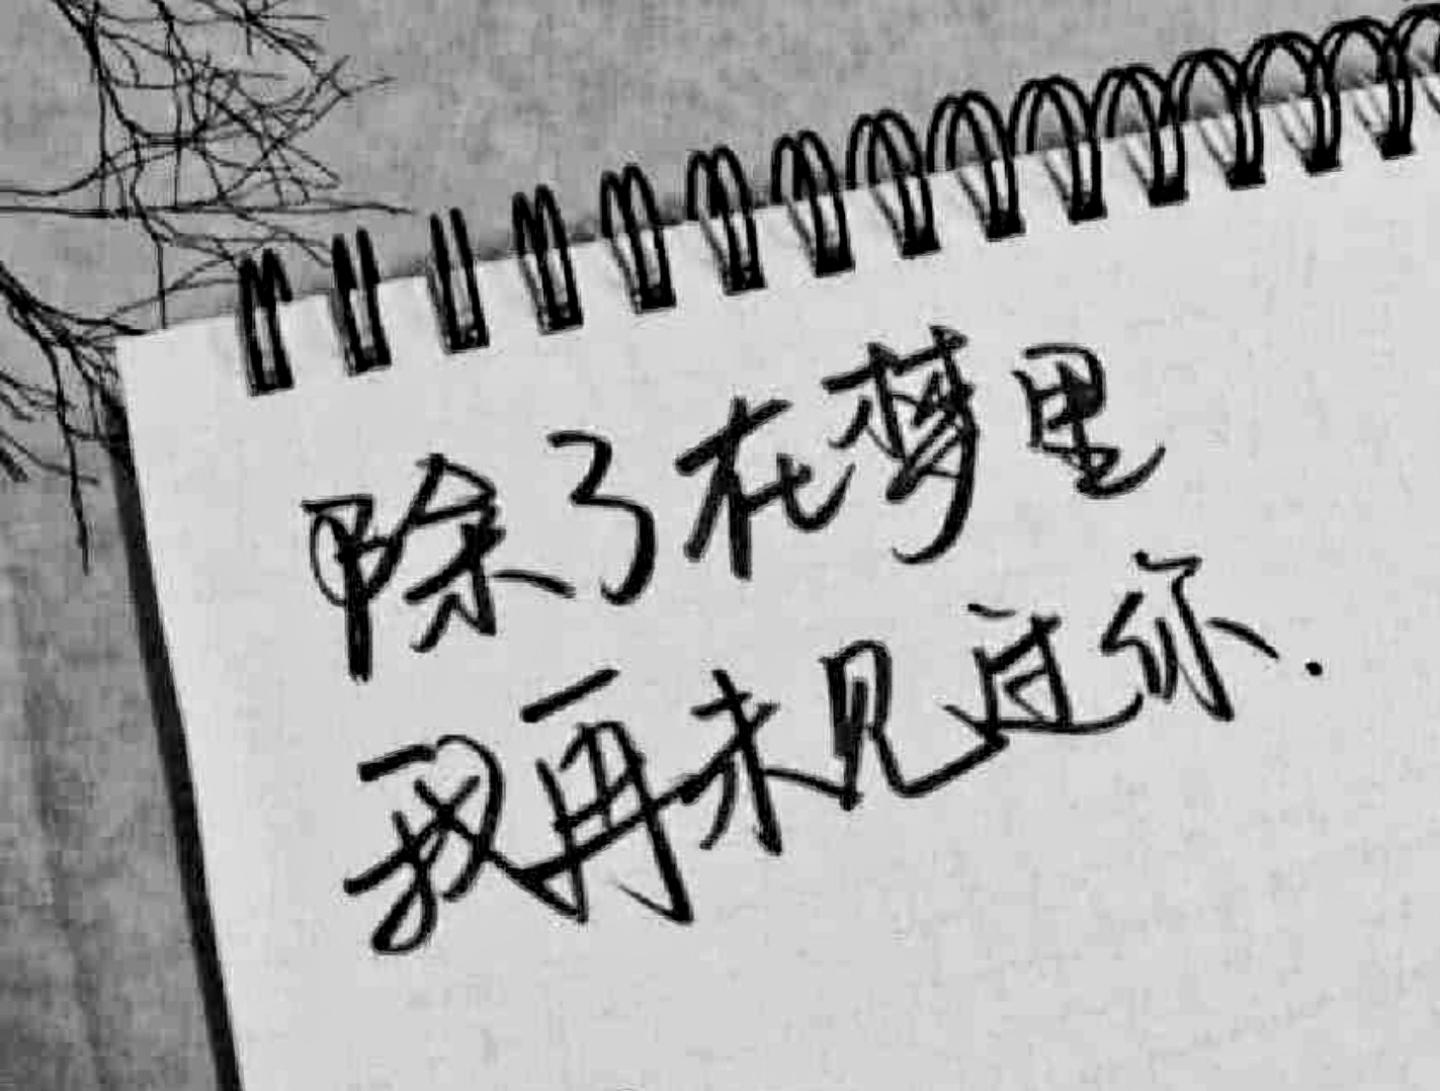 除了在梦里
我再未见过你.